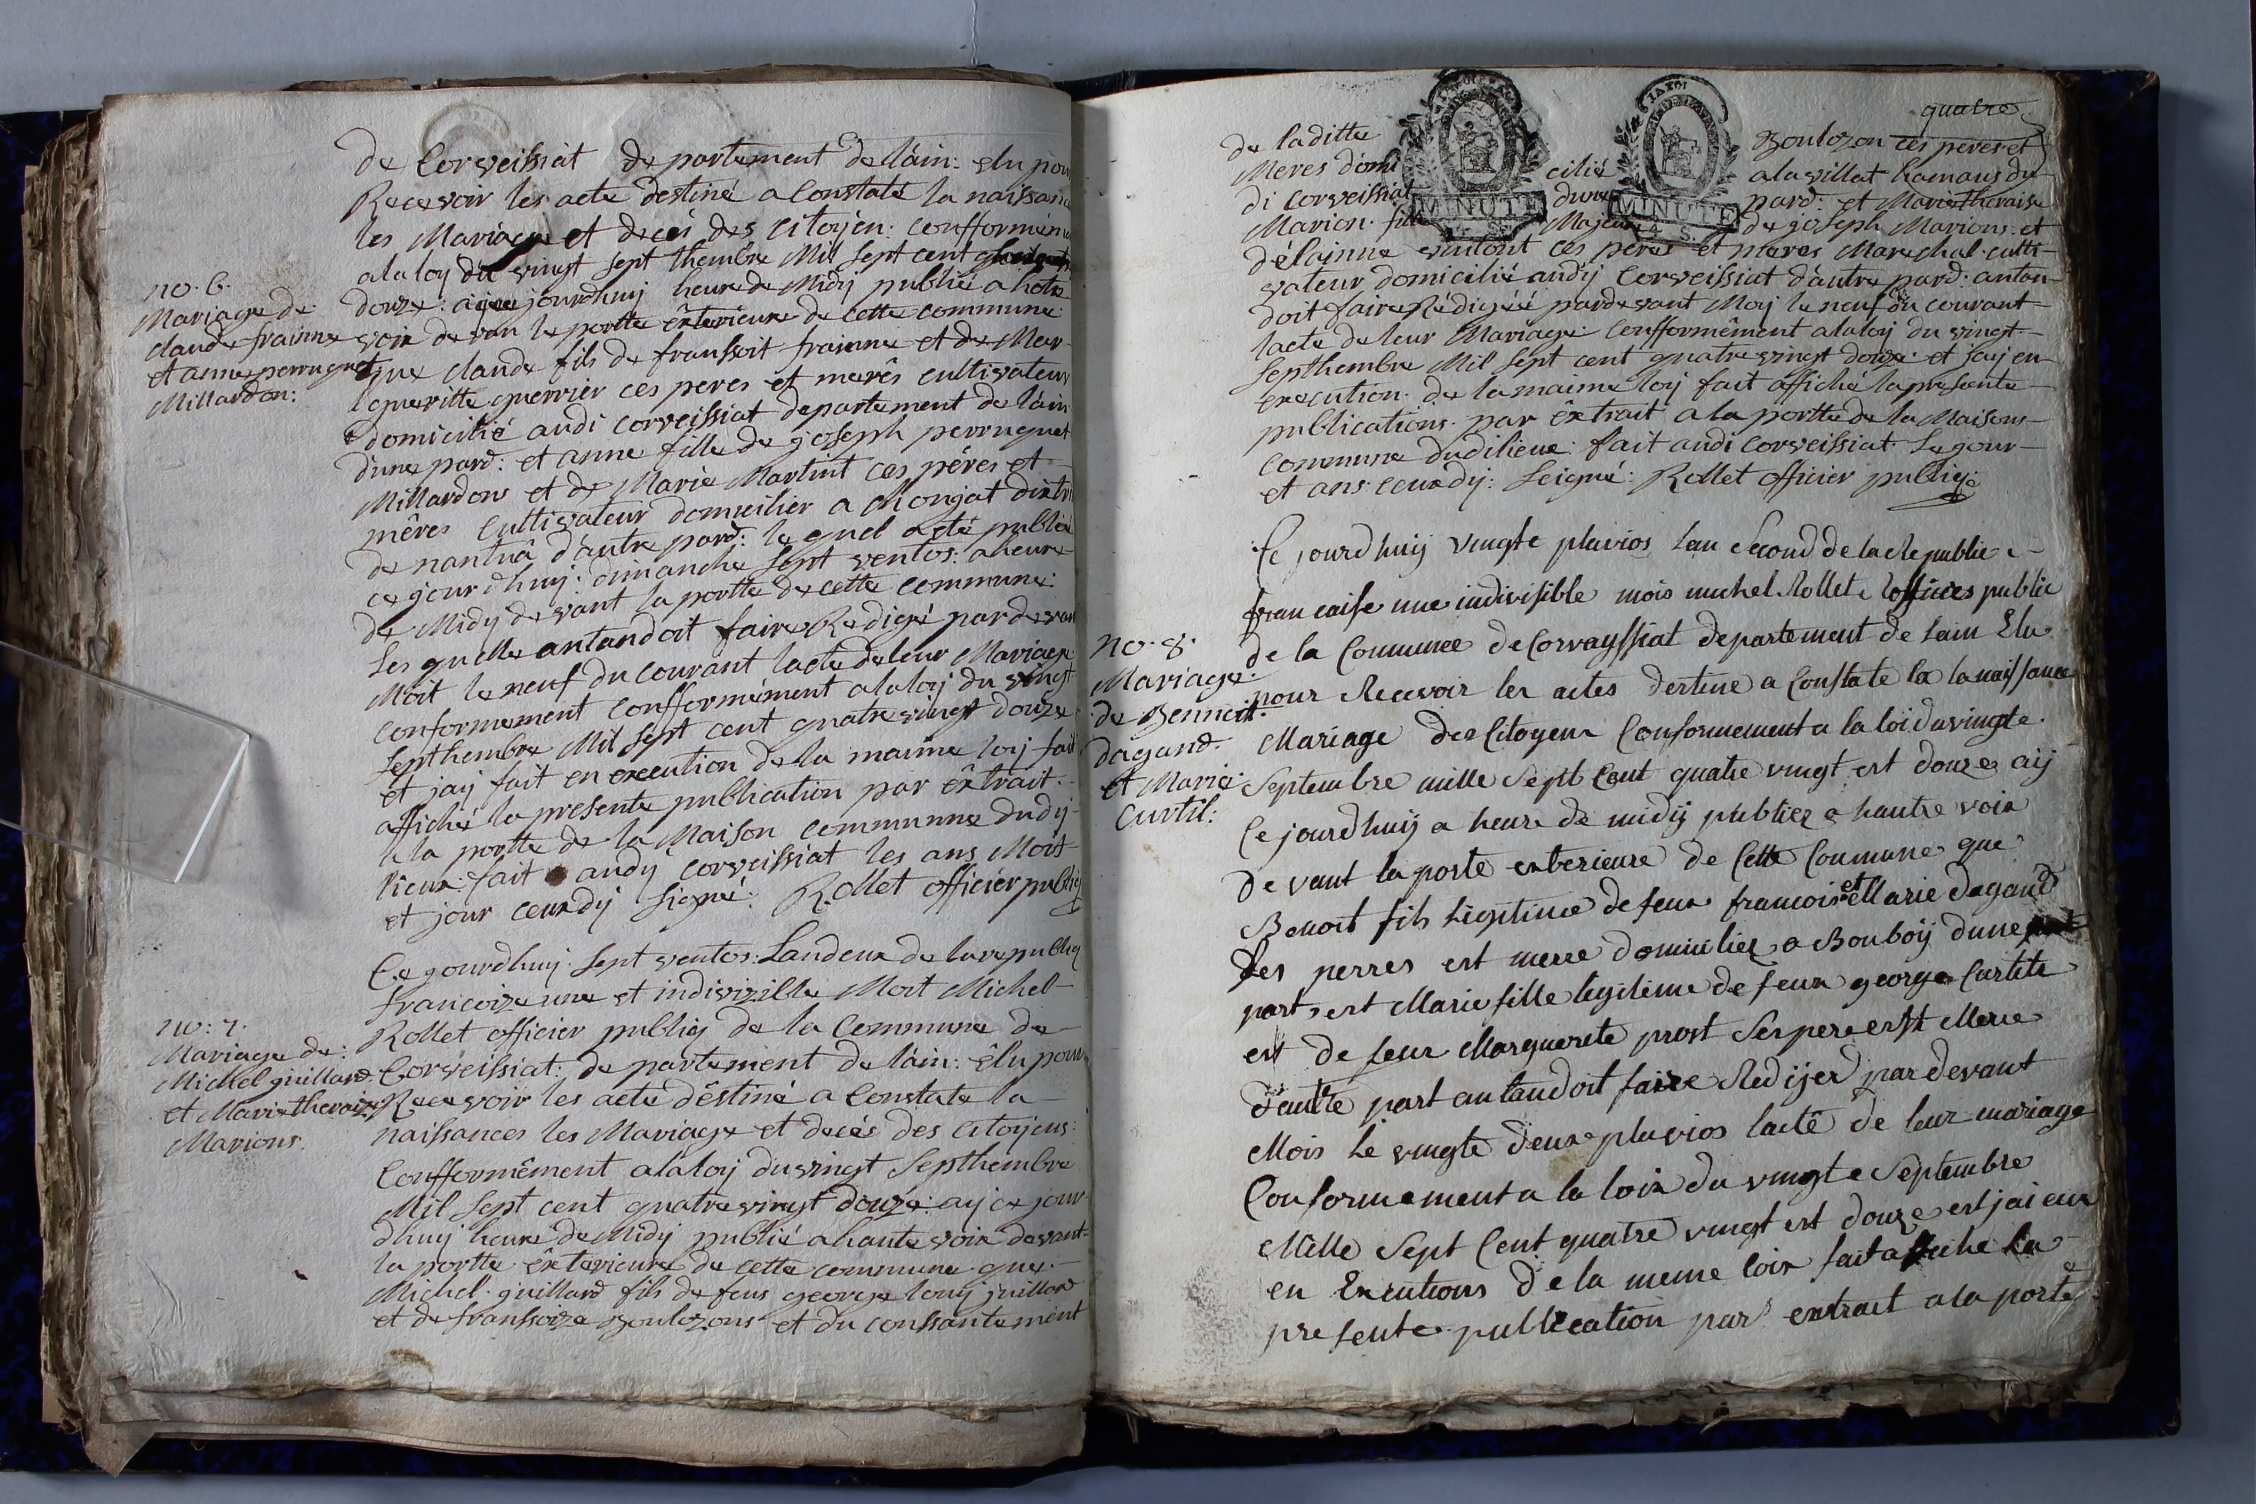 de Corveissiat departement de lain: elu pour
Recevoir les acte destiné a Constaté la naissance
les Mariage et decés des Citoÿen: confformément
alaloy du vingt sept thembre Mil sept cent
douze: aÿ ce jourdhuij heure de Midÿ publié a hote
voix de van le portte exterieure de cette commune
que claude fils de franssoit frainne et de Mar-
gueritte guerrier ces peres et merês cultivateur
domicilié audi corveissiat departement de láin
dune pard: et anne fille de joseph perruquet
Millardon et de Marie Martint ces péres et
mêres Cultivateur domicilier a Chongat distri
de nantuâ dautre pard: le quel acté publié
ce jourdhuj: dimanche sept ventos: aheure
de Midy devant la portte de cette commune:
Les quelle antandoit faire Redigé pardevant
Moit le neuf du courant lacte de leur Mariage
conformement confformément alaloij du vingt
septhembre Mil sept cent quatrevingt douze
et jaÿ fait en execution de la maime loij fait
affiché la presente publication par êxtrait
a la portte de la Maison commune dudÿ
lieux: fait audÿ corveissiat les ans Mois
et jour ceuxdÿ signé: Rollet officier publiq
no. 6.
Mariage de
claude frainne
et anne perruquet
Millardon:
Ce gourdhuij sept ventos: Landeux de la republiq
francoize une et indivizille Moit Michel
Rollet officier publiq de la Commune de
Corveissiat: departement de láin: êlu pour
Recevoir les acté dêstiné a Constate la
naissances les Mariage et decés des citoÿens:
Confformêment alaloij du vingt Septhembre
Mil sept cent quatrevingt douze: aÿ ce jour-
dhuij heure de Midÿ publié a haute voix devant
la portte êxterieure de cette commune que
Michel guillard fils de feus george louij guillard
et de franssoize Boulozons et du conssantement
no: 7.
Mariage de:
Michel guillard
et Marie theraize
Marions
quatre
de laditte Boulozon ces peres et
Meres domicilié alavillat hamaus du
di corveissiat dune pard: et Marietheraise
Marion fille Majeure de joseph Marions et
délainne vuitont ces peres et meres Marechal culti-
vateur domicilié audÿ Corveissiat dautre pard: antan-
doit faire Rédigéé pardevant Moij le neuf du courant
lacte de leur Mariage: Confformêment alaloij du vingt
septhembre Mil sept cent quatrevingt douze: et jaij en
execution de la maime loij fait affiché lapresente
publications par êxtrait a la portte de la Maisons
commune dudilieue: fait audi corveissiat Le gour
et ans ceuxdÿ: Seigné: Rollet officier publiqe
Ce jourdhuij vingte pluvios Lan Second de la Republic
francaise une indivisible mois michel Rollet loffices public
de la Communee de Corvayssiat departement de Lain Elu
pour Recevoir les actes destine a Constate la lanaissance
Mariage des Citoyen Conformement a la loi du vingte
Septembre mille Sept Cent quatre vingt est douze aij
Ce jourdhuij a heure de midij publiez a hautre voix
devant la porte exterieure de Cette Commune que
Benoit fils Legitime de feux francois et Marie Dagand
Ses perres est merre domiciliez a Bouboij dune
part, est Marie fille legiteme de feux george Curtete
est de feux Marguerete prost Ses pere est Merre
dautre part antandoit faire Redijer par devant
Mois Le vingte deux pluvios lactê de leur mariage
Conformement a la loix du vingte Septembre
Mille Sept Cent quatre vingt est douze est jai eux
en Executions de la meme loix fait affiche La
presente publication par extrait a la porte
no. 8.
Mariage:
de Bennoit
Dagand
et Marie
Curtil:
MINUTE
MINUTE